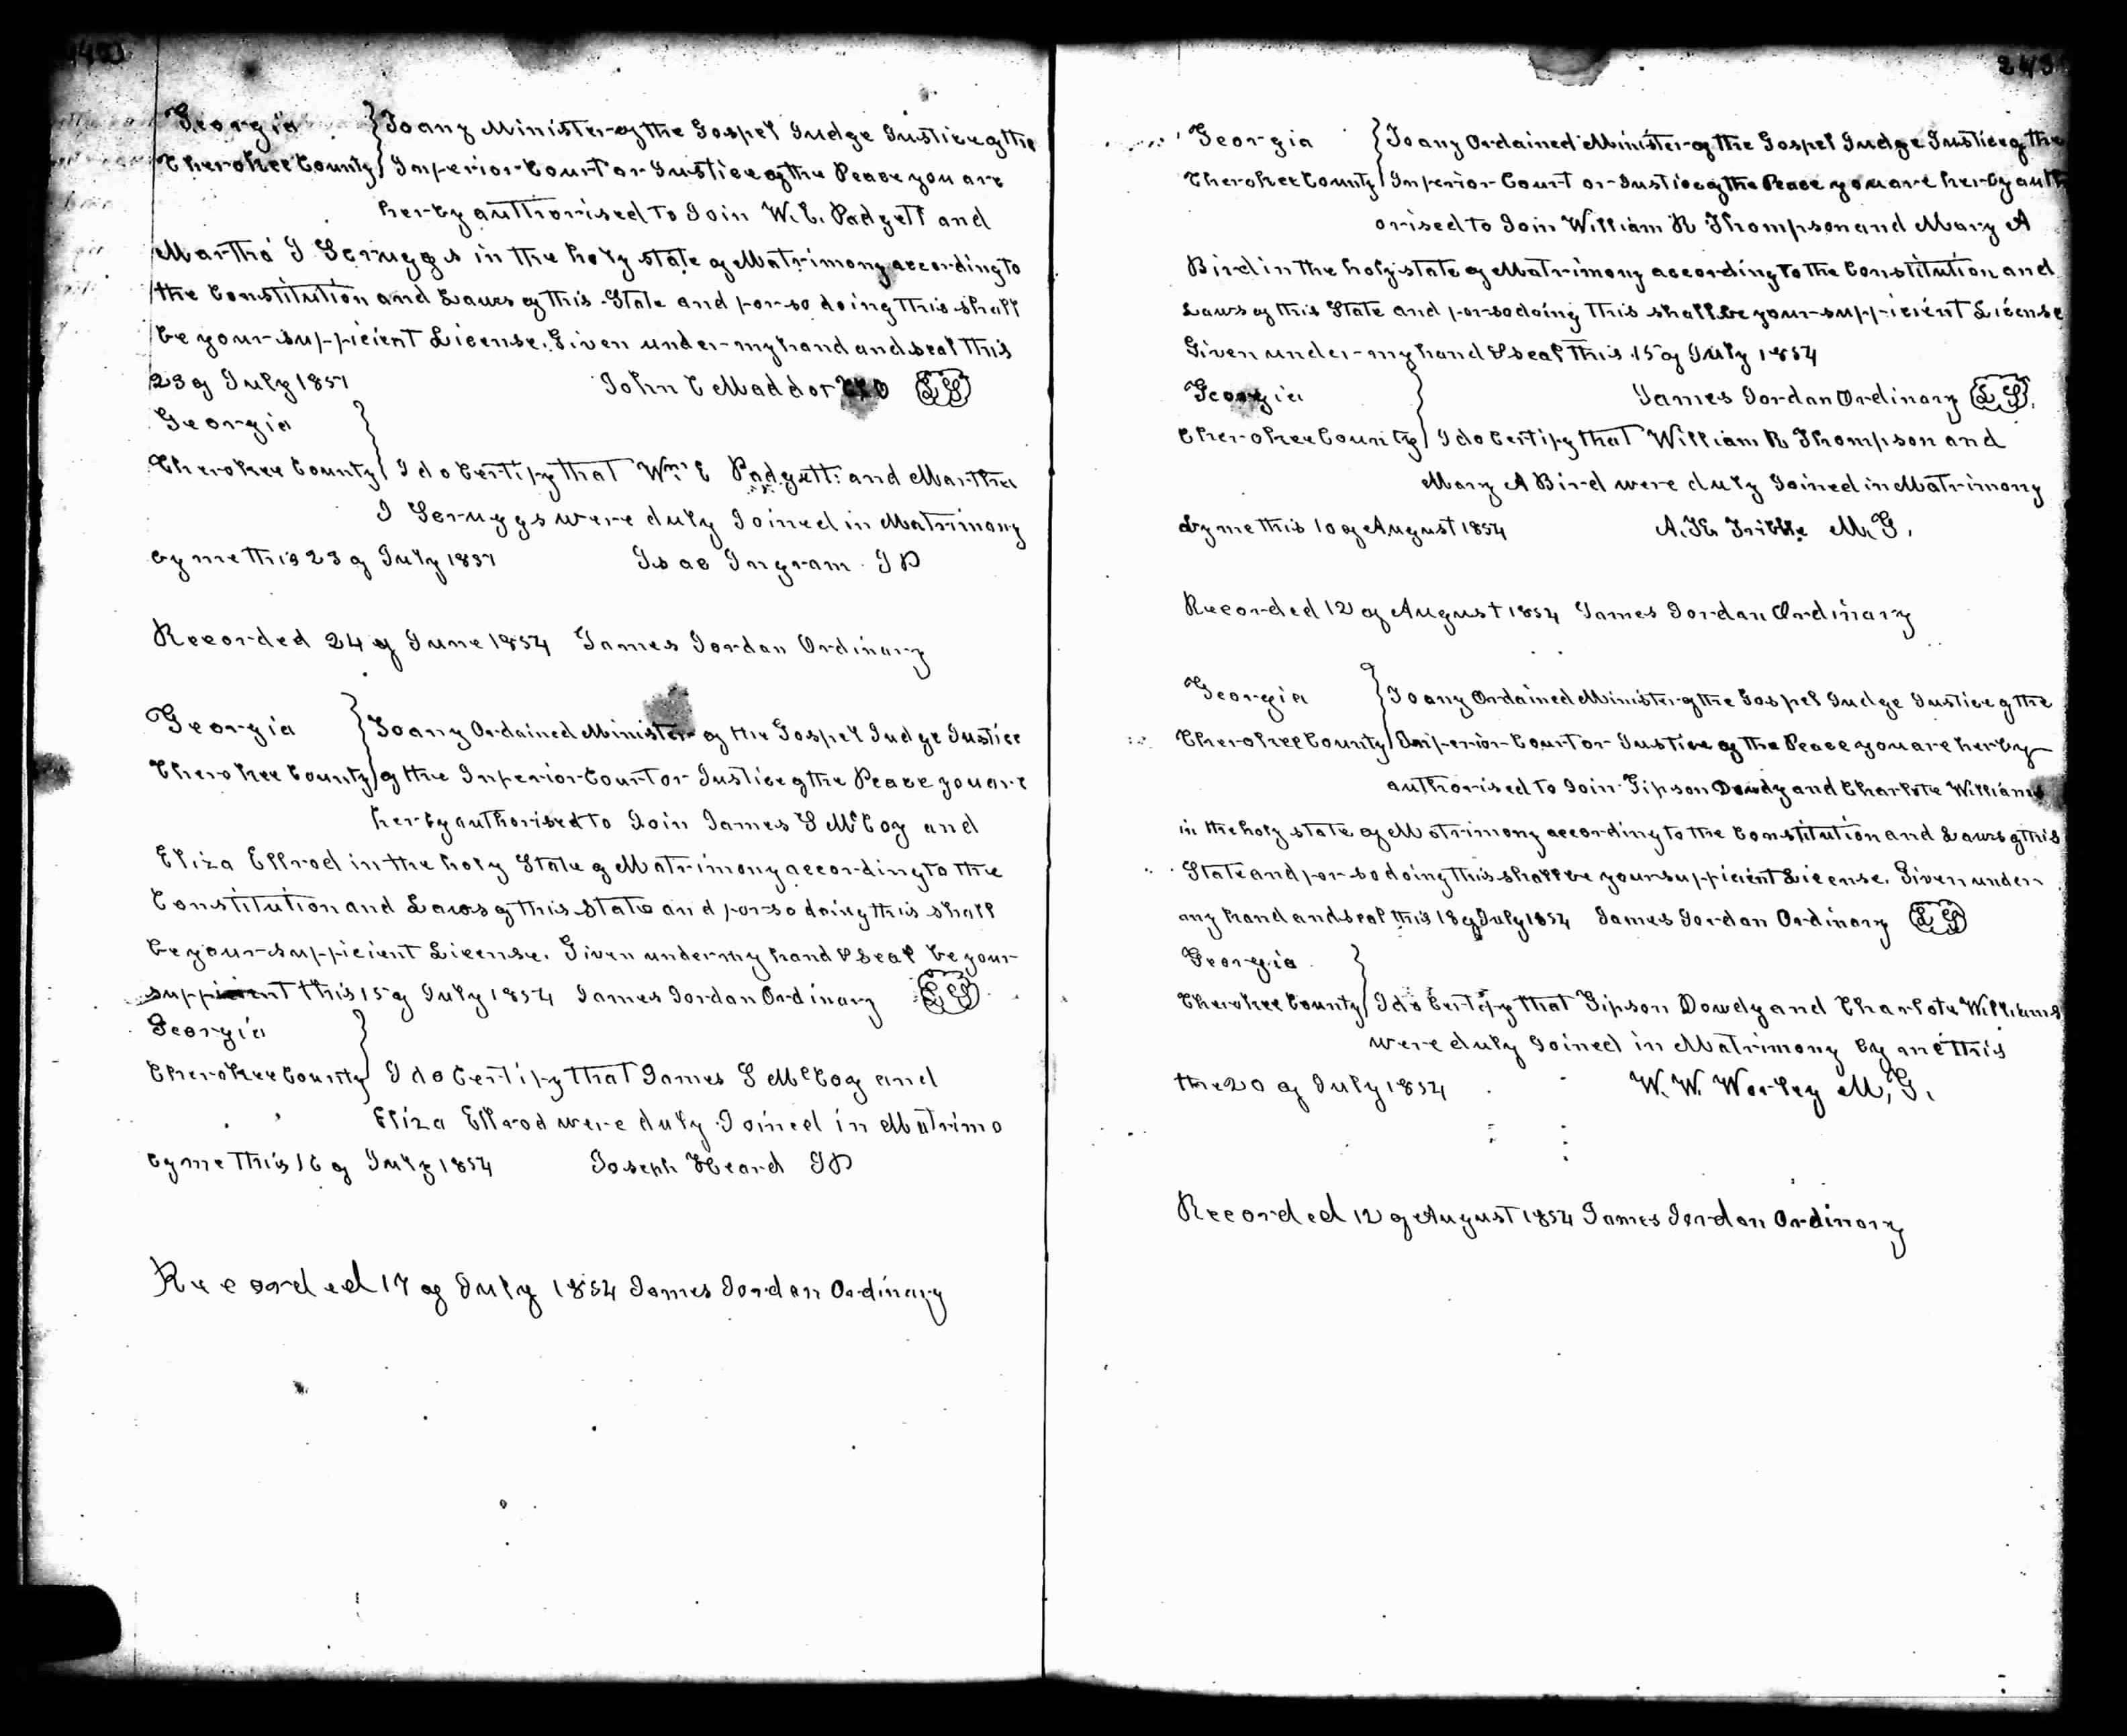 Georgia } To any Minister of the Gospel Judge Justice of the
Cherokee County } Inferior Court or Justice of the Peace you are
herby authorised to Join W. C. Padgett and
Martha J Scruggs in the holy state of Matrimony according to
the Constitution and Laws of this State and for so doing this shall
be your sufficient License. Given under my hand and seal this
23 of July 1851 John C Maddox LS
Georgia
Cherokee County } I do Certify that Wm. C Padgett and Martha
J Scruggs were duly Joined in Matrimony
by me this 23 of July 1851 Isac Ingram JP
Recorded 24 of June 1854 James Jordan Ordinary
Georgia } To any Ordained Minister of the Gospel Judge Justice
Cherokee County } of the Inferior Court or Justice of the Peace you are
herby authorised to Join James S McCoy and
Eliza Ellrod in the holy State of Matrimony according to the
Constitution and Laws of this State and for so doing this shall
be your sufficient License. Given under my hand & seal be your
sufficient this 15 of July 1854 James Jordan Ordinary LS
Georgia
Cherokee County } I do Certify that James S McCoy and
Eliza Ellrod were duly Joined in Matrimo
by me this 16 of July 1854 Joseph Heard JP
Recorded 17 of July 1854 James Jordan Ordinary
243
Georgia } To any Ordained Minister of the Gospel Judge Justice of the
Cherokee County } Inferior Court or Justice of the Peace you are herby auth
orised to Join William R Thompson and Mary A
Bird in the holy state of Matrimony according to the Constitution and
Laws of this State and for so doing this shall be your sufficient License
Given under my hand & seal this 15 of July 1854
Georgia James Jordan Ordinary LS
Cherokee County } I do Certify that William R Thompson and
Mary A Bird were duly Joined in Matrimony
by me this 10 of August 1854 A. K. Tribble M. G.
Recorded 12 of August 1854 James Jordan Ordinary
Georgia } To any Ordained Minister of the Gospel Judge Justice of the
Cherokee County } Inferior Court or Justice of the Peace you are herby
authorised to Join Gipson Dowdy and Charlote Williams
in the holy state of Matrimony according to the Constitution and Laws of this
State and for so doing this shall be your sufficient License. Given under
my hand and seal this 18 of July 1854 James Jordan Ordinary LS
Georgia
Cherokee County } I do Certify that Gipson Dowdy and Charlote Williams
were duly Joined in Matrimony by me this
the 20 of July 1854 W. W. Worley M, G.
Recorded 12 of August 1854 James Jordan Ordinary